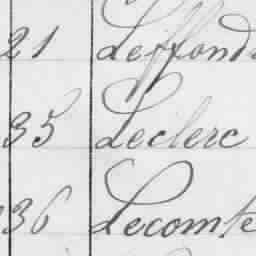 21 Leffond
35 Leclerc
36 Lecomte